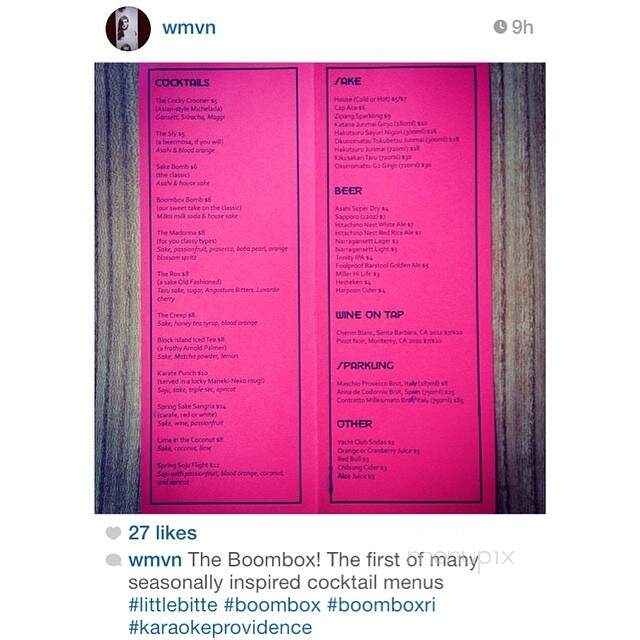 wmvn
9h
COCKTAILS
The Cocky Crooner $5
(Asian-style Michelada)
Gansett, Sriracha, Maggi
The Sly $5
(a beermosa, if you will)
Asahi & blood orange
Sake Bomb $6
(the classic)
Asahi & house sake
Boombox Bomb $6
(our sweet take on the classic)
Milkis milk soda & house sake
The Madonna $8
(for you classy types)
Sake, passionfruit, prosecco, boba pearl, orange
blossom spritz
The Rox $8
(a sake Old Fashioned)
Taru sake, sugar, Angostura Bitters, Luxardo
cherry
The Creep $8
Sake, honey tea syrup, blood orange
Block Island Iced Tea $8
(a frothy Arnold Palmer)
Sake, Matcha powder, lemon
Karate Punch $10
(served in a lucky Maneki-Neko mug!)
Soju, sake, triple sec, apricot
Spring Sake Sangria $24
(carafe, red or white)
Sake, wine, passionfruit
Lime in the Coconut $8
Sake, coconut, lime
Spring Soju Flight $12
Soju with passionfruit, blood orange, coconut,
and apricot
SAKE
House (Cold or Hot) $5/$7
Cap Ace $6
Zipang Sparkling $9
Katana Junmai Ginjo (180ml) $10
Hakutsuru Sayuri Nigori (300ml) $16
Okunomatsu Tokubetsu Junmai (300ml) $18
Hakutsuru Junmai (720ml) $18
Kikusakari Taru (720ml) $30
Okunomatsu G2 Ginjo (720ml) $30
BEER
Asahi Super Dry $4
Sapporo (22oz) $7
Hitachino Nest White Ale $7
Hitachino Nest Red Rice Ale $7
Narragansett Lager $3
Narragansett Light $3
Trinity IPA $4
Foolproof Barstool Golden Ale $5
Miller Hi Life $3
Heineken $4
Harpoon Cider $4
WINE ON TAP
Chenin Blanc, Santa Barbara, CA 2012 $7/$20
Pinot Noir, Monterey, CA 2012 $7/$20
SPARKLING
Maschio Prosecco Brut, Italy (187ml) $8
Anna de Codorniu Brut, Spain (750ml) $25
Contratto Millesimato Brut, Italy (750ml) $85
OTHER
Yacht Club Sodas $3
Orange or Cranberry Juice $3
Red Bull $3
Chilsung Cider $3
Aloe Juice $3
27 likes
wmvn The Boombox! The first of many
menupix
seasonally inspired cocktail menus
#littlebitte #boombox #boomboxri
#karaokeprovidence